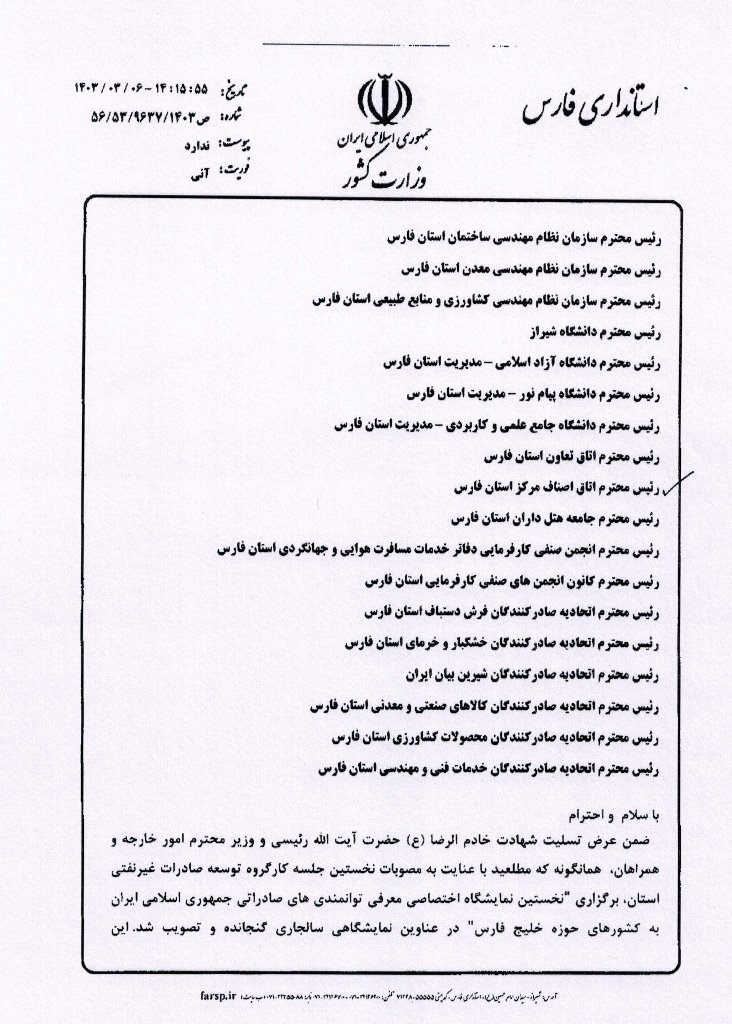 استانداری فارس
جمهوری اسلامی ایران
وزارت کشور
تاریخ: ۱۴:۱۵:۵۵ - ۱۴۰۳/۰۳/۰۶
شماره: ص۵۶/۵۳/۹۶۳۷/۱۴۰۳
پیوست: ندارد
فوریت: آنی
رئیس محترم سازمان نظام مهندسی ساختمان استان فارس
رئیس محترم سازمان نظام مهندسی معدن استان فارس
رئیس محترم سازمان نظام مهندسی کشاورزی و منابع طبیعی استان فارس
رئیس محترم دانشگاه شیراز
رئیس محترم دانشگاه آزاد اسلامی – مدیریت استان فارس
رئیس محترم دانشگاه پیام نور – مدیریت استان فارس
رئیس محترم دانشگاه جامع علمی و کاربردی – مدیریت استان فارس
رئیس محترم اتاق تعاون استان فارس
رئیس محترم اتاق اصناف مرکز استان فارس
رئیس محترم جامعه هتل داران استان فارس
رئیس محترم انجمن صنفی کارفرمایی دفاتر خدمات مسافرت هوایی و جهانگردی استان فارس
رئیس محترم کانون انجمن های صنفی کارفرمایی استان فارس
رئیس محترم اتحادیه صادرکنندگان فرش دستباف استان فارس
رئیس محترم اتحادیه صادرکنندگان خشکبار و خرمای استان فارس
رئیس محترم اتحادیه صادرکنندگان شیرین بیان ایران
رئیس محترم اتحادیه صادرکنندگان کالاهای صنعتی و معدنی استان فارس
رئیس محترم اتحادیه صادرکنندگان محصولات کشاورزی استان فارس
رئیس محترم اتحادیه صادرکنندگان خدمات فنی و مهندسی استان فارس
با سلام و احترام
ضمن عرض تسلیت شهادت خادم الرضا (ع) حضرت آیت الله رئیسی و وزیر محترم امور خارجه و
همراهان، همانگونه که مطلعید با عنایت به مصوبات نخستین جلسه کارگروه توسعه صادرات غیرنفتی
استان، برگزاری "نخستین نمایشگاه اختصاصی معرفی توانمندی های صادراتی جمهوری اسلامی ایران
به کشورهای حوزه خلیج فارس" در عناوین نمایشگاهی سالجاری گنجانده و تصویب شد. این
آدرس: شیراز - میدان امام حسین (ع)، استانداری فارس - کدپستی farsp.ir